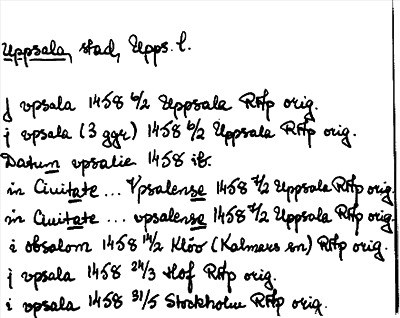 Uppsala, stad, Upps. l.
J vpsala 1458 6/2 Uppsala RAp orig.
j vpsala (3 ggr) 1458 6/2 Uppsala RAp orig.
Datum vpsalie 1458 ib.
in Ciuitate ... Vpsalense 1458 7/2 Uppsala RAp orig.
in Ciuitate ... vpsalense 1458 7/2 Uppsala RAp orig.
i obsalom 1458 14/2 Klöv (Kalmars sn) RAp orig.
j vpsala 1458 24/3 Hof RAp orig.
i vpsala 1458 31/5 Stockholm RAp orig.